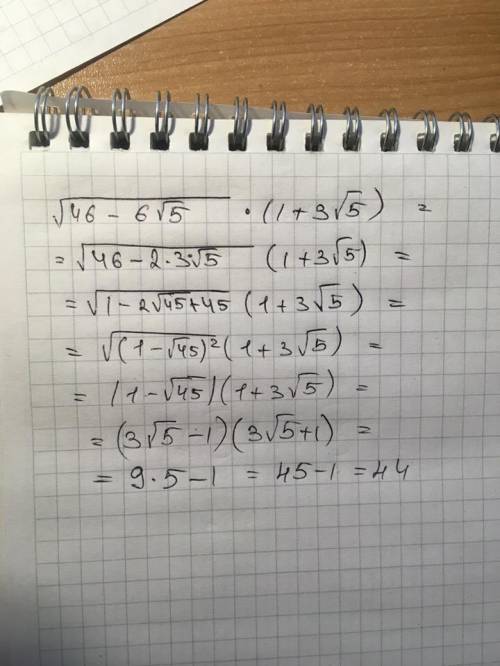 √(46 - 6√5) · (1 + 3√5) =
= √(46 - 2·3·√5) (1 + 3√5) =
= √(1 - 2√45 + 45) (1 + 3√5) =
= √((1 - √45)²) (1 + 3√5) =
= |1 - √45| (1 + 3√5) =
= (3√5 - 1)(3√5 + 1) =
= 9·5 - 1 = 45 - 1 = 44